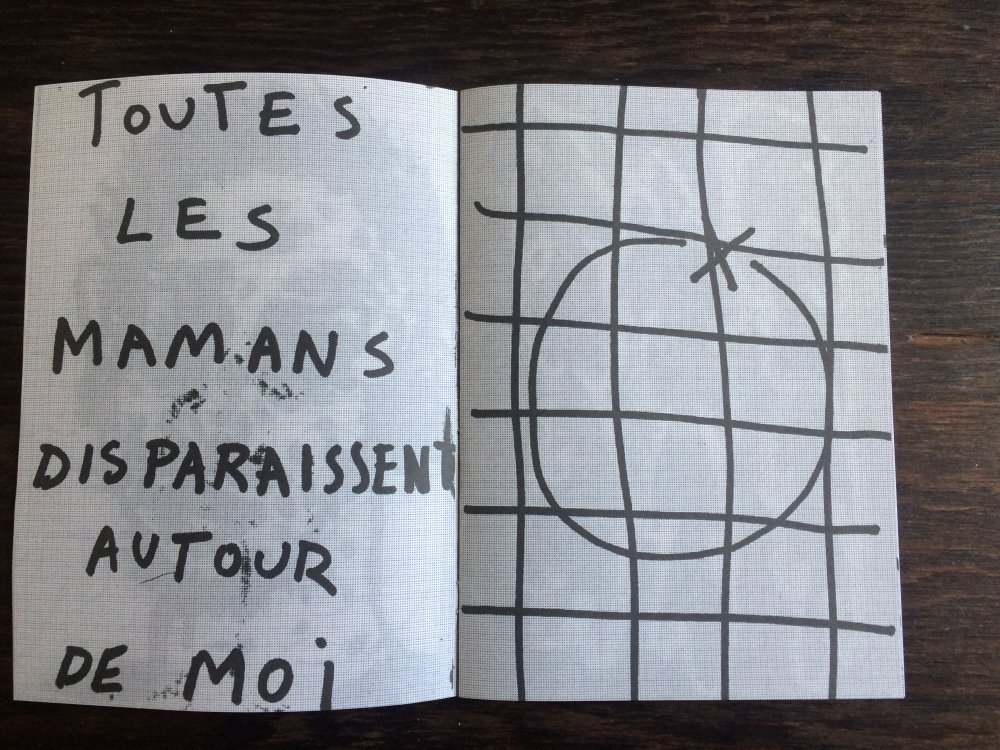 TOUTES
LES
MAMANS
DISPARAISSENT
AUTOUR
DE MOi